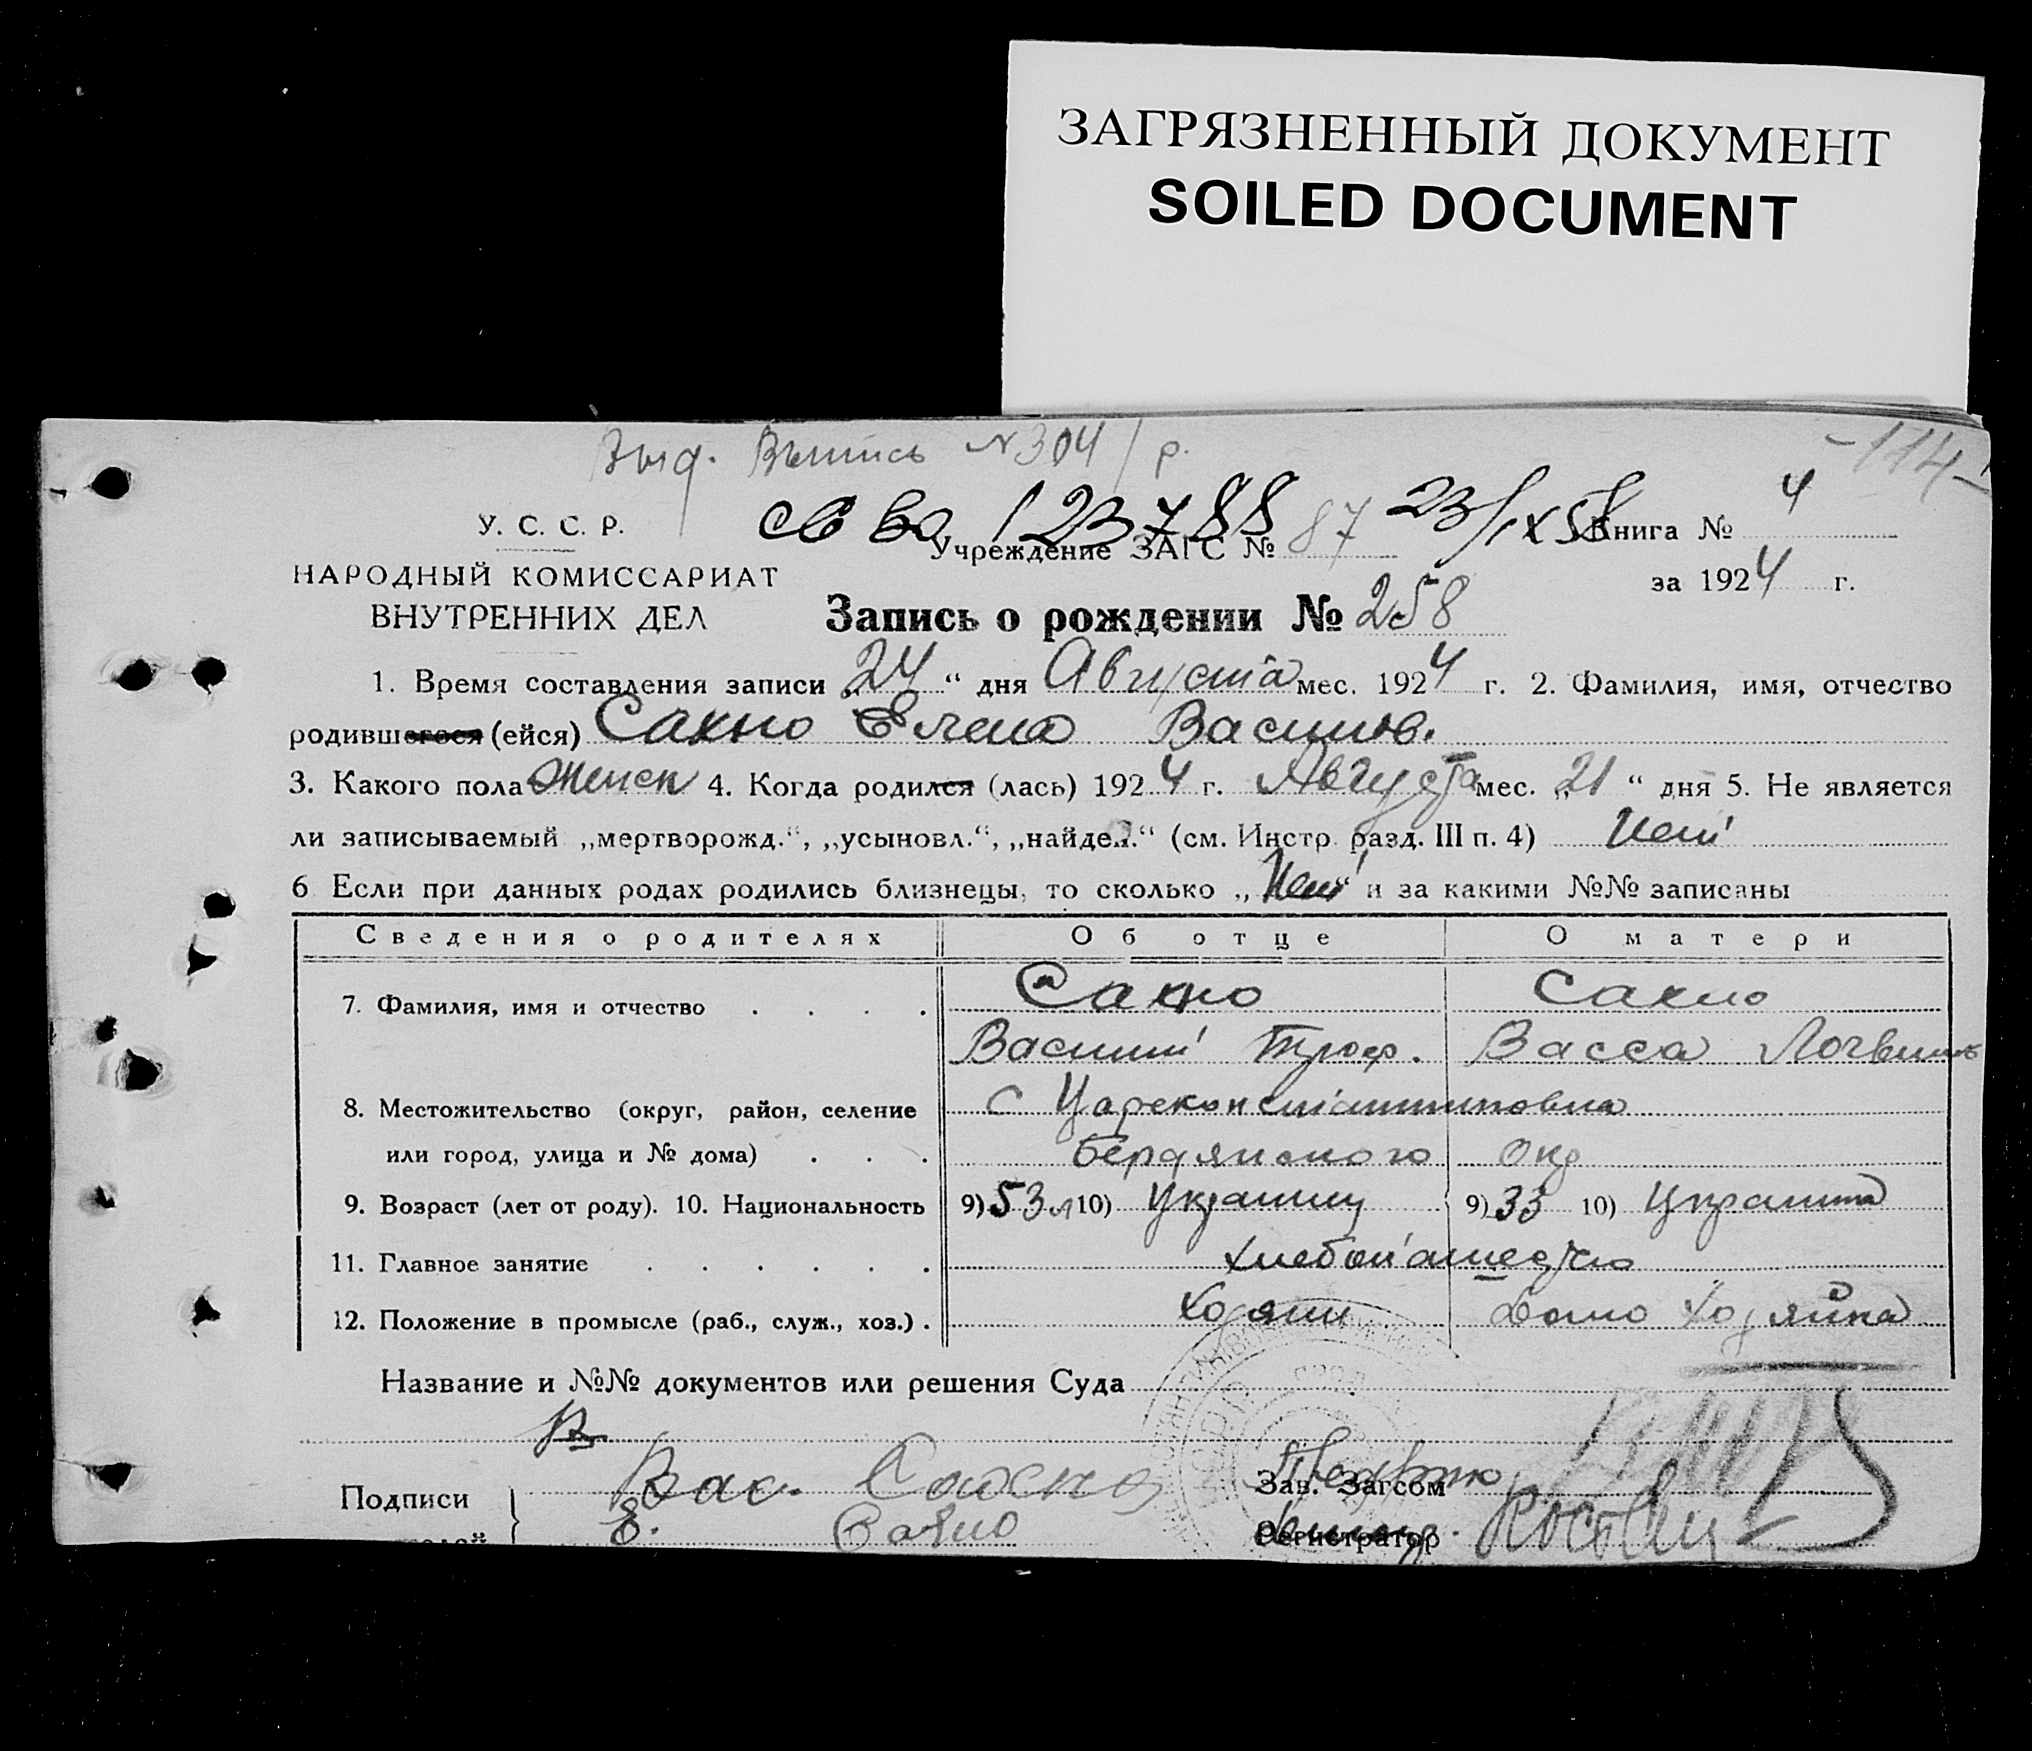 ЗАГРЯЗНЕННЫЙ ДОКУМЕНТ
SOILED DOCUMENT
Выд. Выпись №304/р. -114-
У. С. С. Р. 123788 23/IX 58
Учреждение ЗАГС № 87 Книга № 4
НАРОДНЫЙ КОМИССАРИАТ за 1924 г.
ВНУТРЕННИХ ДЕЛ Запись о рождении № 258
1. Время составления записи „24“ дня Августа мес. 1924 г. 2. Фамилия, имя, отчество
родившегося (ейся) Сахно Елена Васильев.
3. Какого пола Женск 4. Когда родился (лась) 1924 г. Августа мес. „21“ дня 5. Не является
ли записываемый „мертворожд.“, „усыновл.“, „найден.“ (см. Инстр. разд. III п. 4) нет
6 Если при данных родах родились близнецы, то сколько „нет“ и за какими №№ записаны
Сведения о родителях Об отце О матери
7. Фамилия, имя и отчество . . . . Сахно Сахно
Василий Троф. Васса Логвин
8. Местожительство (округ, район, селение с Цареконстантиновка
или город, улица и № дома) . . . Бердянского Окр
9. Возраст (лет от роду). 10. Национальность 9) 53 л 10) Украинец 9) 33 10) Украинка
11. Главное занятие . . . . . . хлебопашество
12. Положение в промысле (раб., служ., хоз.) . Хозяин домо хозяйка
Название и №№ документов или решения Суда
Подписи Вас. Сахно Зав. Загсом
Е. Сахно Регистратор